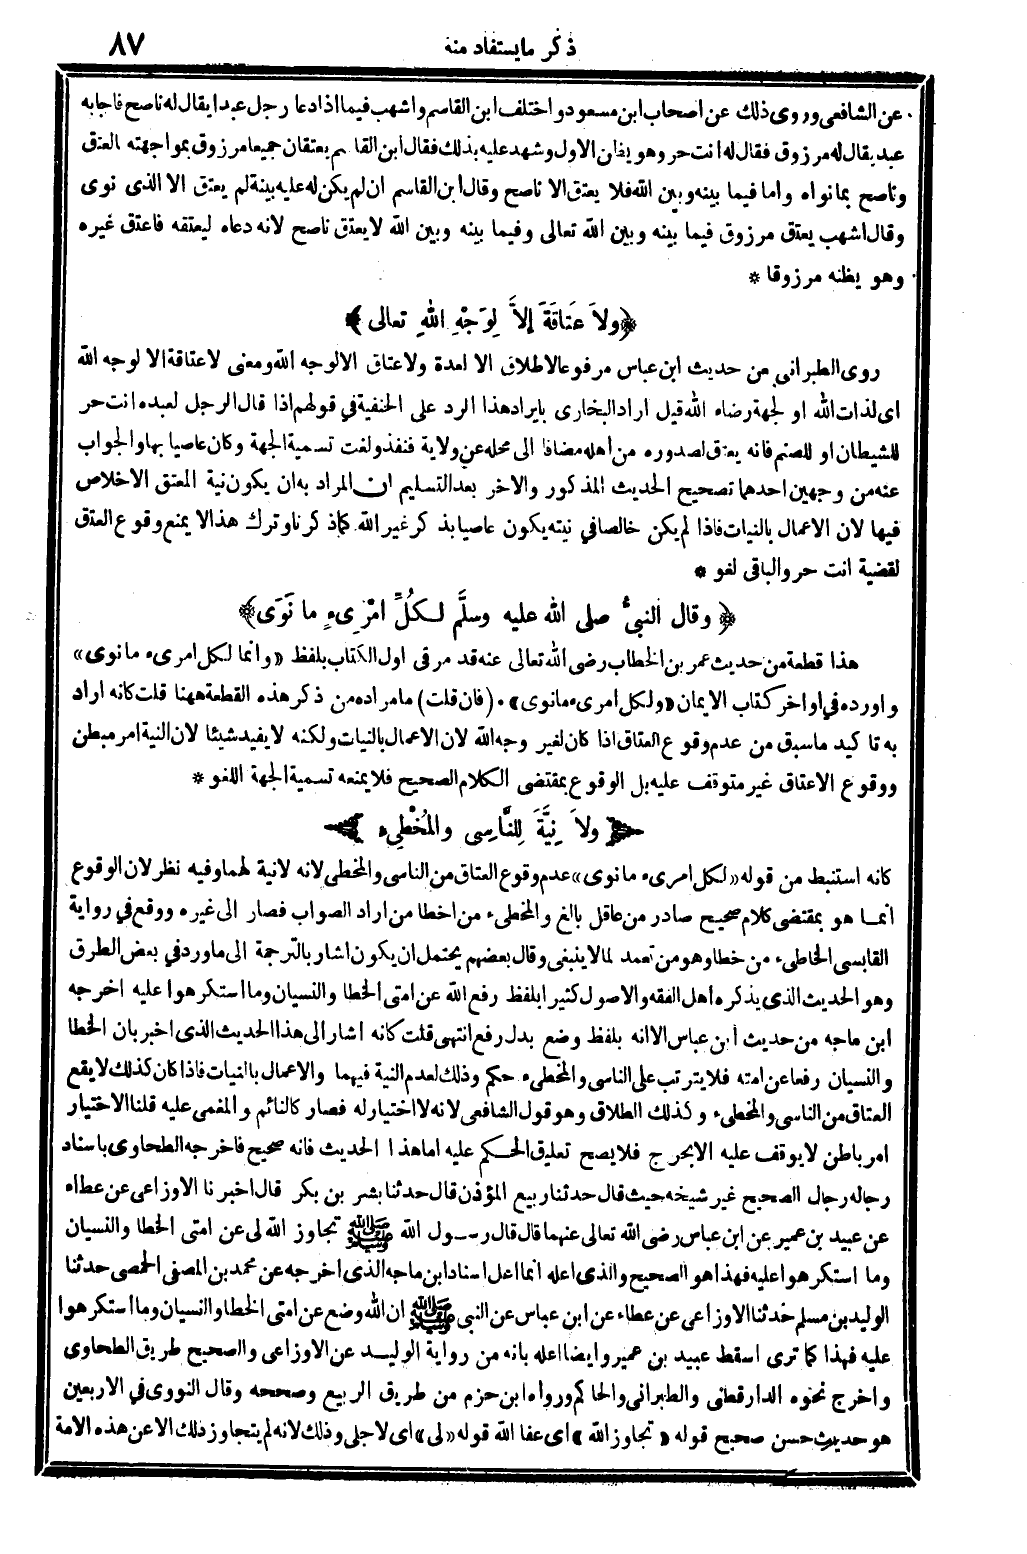 ذكر مايستفاد منه
٨٧
عن الشافعى وروى ذلك عن اصحاب ابن مسعود واختلف ابن القاسم واشهب فيما اذا دعا رجل عبدا يقال له ناصح فاجابه
عبد يقال له مرزوق فقال له انت حر وهو يظن الاول وشهد عليه بذلك فقال ابن القاسم يعتقان جميعا مرزوق بمواجهته العتق
وناصح بمانواه واما فيما بينه وبين الله فلا يعتق الا ناصح وقال ابن القاسم ان لم يكن له عليه بينة لم يعتق الا الذى نوى
وقال اشهب يعتق مرزوق فيما بينه وبين الله تعالى وفيما بينه وبين الله لايعتق ناصح لانه دعاه ليعتقه فاعتق غيره
وهو يظنه مرزوقا *
﴿ولاَ عَتَاقَةَ إلاَّ لِوَجْهِ اللهِ تعالى﴾
روى الطبرانى من حديث ابن عباس مرفوعا لاطلاق الا لعدة ولاعتاق الالوجه الله ومعنى لاعتاقة الا لوجه الله
اى لذات الله او لجهة رضاء الله قيل اراد البخارى بايراد هذا الرد على الحنفية في قولهم اذا قال الرجل لعبده انت حر
للشيطان او للصنم فانه يعتق لصدوره من اهله مضافا الى محله عن ولاية فنفذ ولغت تسمية الجهة وكان عاصيا بها والجواب
عنه من وجهين احدهما تصحيح الحديث المذكور والآخر بعد التسليم ان المراد به ان يكون نية المعتق الاخلاص
فيها لان الاعمال بالنيات فاذا لم يكن خالصا في نيته يكون عاصيا بذكر غير الله كما ذكرنا وترك هذا لا يمنع وقوع العتق
لقضية انت حر والباقى لغو *
﴿وقال النبىُّ صلى الله عليه وسلَّم لـكُلِّ امْرِىءٍ ما نَوَى﴾
هذا قطعة من حديث عمر بن الخطاب رضى الله تعالى عنه قد مر فى اول الكتاب بلفظ «وانما لكل امرىء مانوى»
واورده في اواخر كتاب الايمان «ولكل امرىء مانوى» . (فان قلت) مامراده من ذكر هذه القطعة ههنا قلت كانه اراد
به تاكيد ماسبق من عدم وقوع العتاق اذا كان لغير وجه الله لان الاعمال بالنيات ولكنه لايفيد شيئا لان النية امر مبطن
ووقوع الاعتاق غير متوقف عليه بل الوقوع بمقتضى الكلام الصحيح فلا يمنعه تسمية الجهة اللغو *
﴿ولاَ نِيَّةَ لِلنَّاسِى والمُخْطِىء﴾
كانه استنبط من قوله «لكل امرىء مانوى» عدم وقوع العتاق من الناسى والمخطى لانه لانية لهما وفيه نظر لان الوقوع
انمـا هو بمقتضى كلام صحيح صادر من عاقل بالغ والمخطىء من اخطا من اراد الصواب فصار الى غيره ووقع في رواية
القابسى الخاطىء من خطا وهو من تعمد لمالاينبغى وقال بعضهم يحتمل ان يكون اشار بالترجمة الى ماورد في بعض الطرق
وهو الحديث الذى يذكره اهل الفقه والاصول كثيرا بلفظ رفع الله عن امتى الخطا والنسيان وما استكرهوا عليه اخرجه
ابن ماجه من حديث ابن عباس الاانه بلفظ وضع بدل رفع انتهى قلت كانه اشار الى هذا الحديث الذى اخبر بان الخطا
والنسيان رفعا عن امته فلا يترتب على الناسى والمخطىء حكم وذلك لعدم النية فيهما والاعمال بالنيات فاذا كان كذلك لايقع
العتاق من الناسى والمخطىء وكذلك الطلاق وهو قول الشافعى لانه لا اختيار له فصار كالنائم والمغمى عليه قلنا الاختيار
امر باطن لايوقف عليه الابحرج فلا يصح تعليق الحـكم عليه اما هذا الحديث فانه صحيح فاخرجه الطحاوى باسناد
رجاله رجال الصحيح غير شيخه حيث قال حدثنا ربيع المؤذن قال حدثنا بشر بن بكر قال اخبرنا الاوزاعى عن عطاء
عن عبيد بن عمير عن ابن عباس رضى الله تعالى عنهما قال قال رسـول الله ﷺ تجاوز الله لى عن امتى الخطا والنسيان
وما استكرهوا عليه فهذا هو الصحيح والذى اعله انما اعل اسناد ابن ماجه الذى اخرجه عن محمد بن المصفى الحمصى حدثنا
الوليد بن مسلم حدثنا الاوزاعى عن عطاء عن ابن عباس عن النبى ﷺ ان الله وضع عن امتى الخطا والنسيان وما استكرهوا
عليه فهذا كما ترى اسقط عبيد بن عمير وايضا اعله بانه من رواية الوليـد عن الاوزاعى والصحيح طريق الطحاوى
واخرج نحوه الدارقطنى والطبرانى والحاكم ورواه ابن حزم من طريق الربيع وصححه وقال النووى في الاربعين
هو حديث حسن صحيح قوله «تجاوز الله» اى عفا الله قوله «لى» اى لاجلى وذلك لانه لم يتجاوز ذلك الا عن هذه الامة